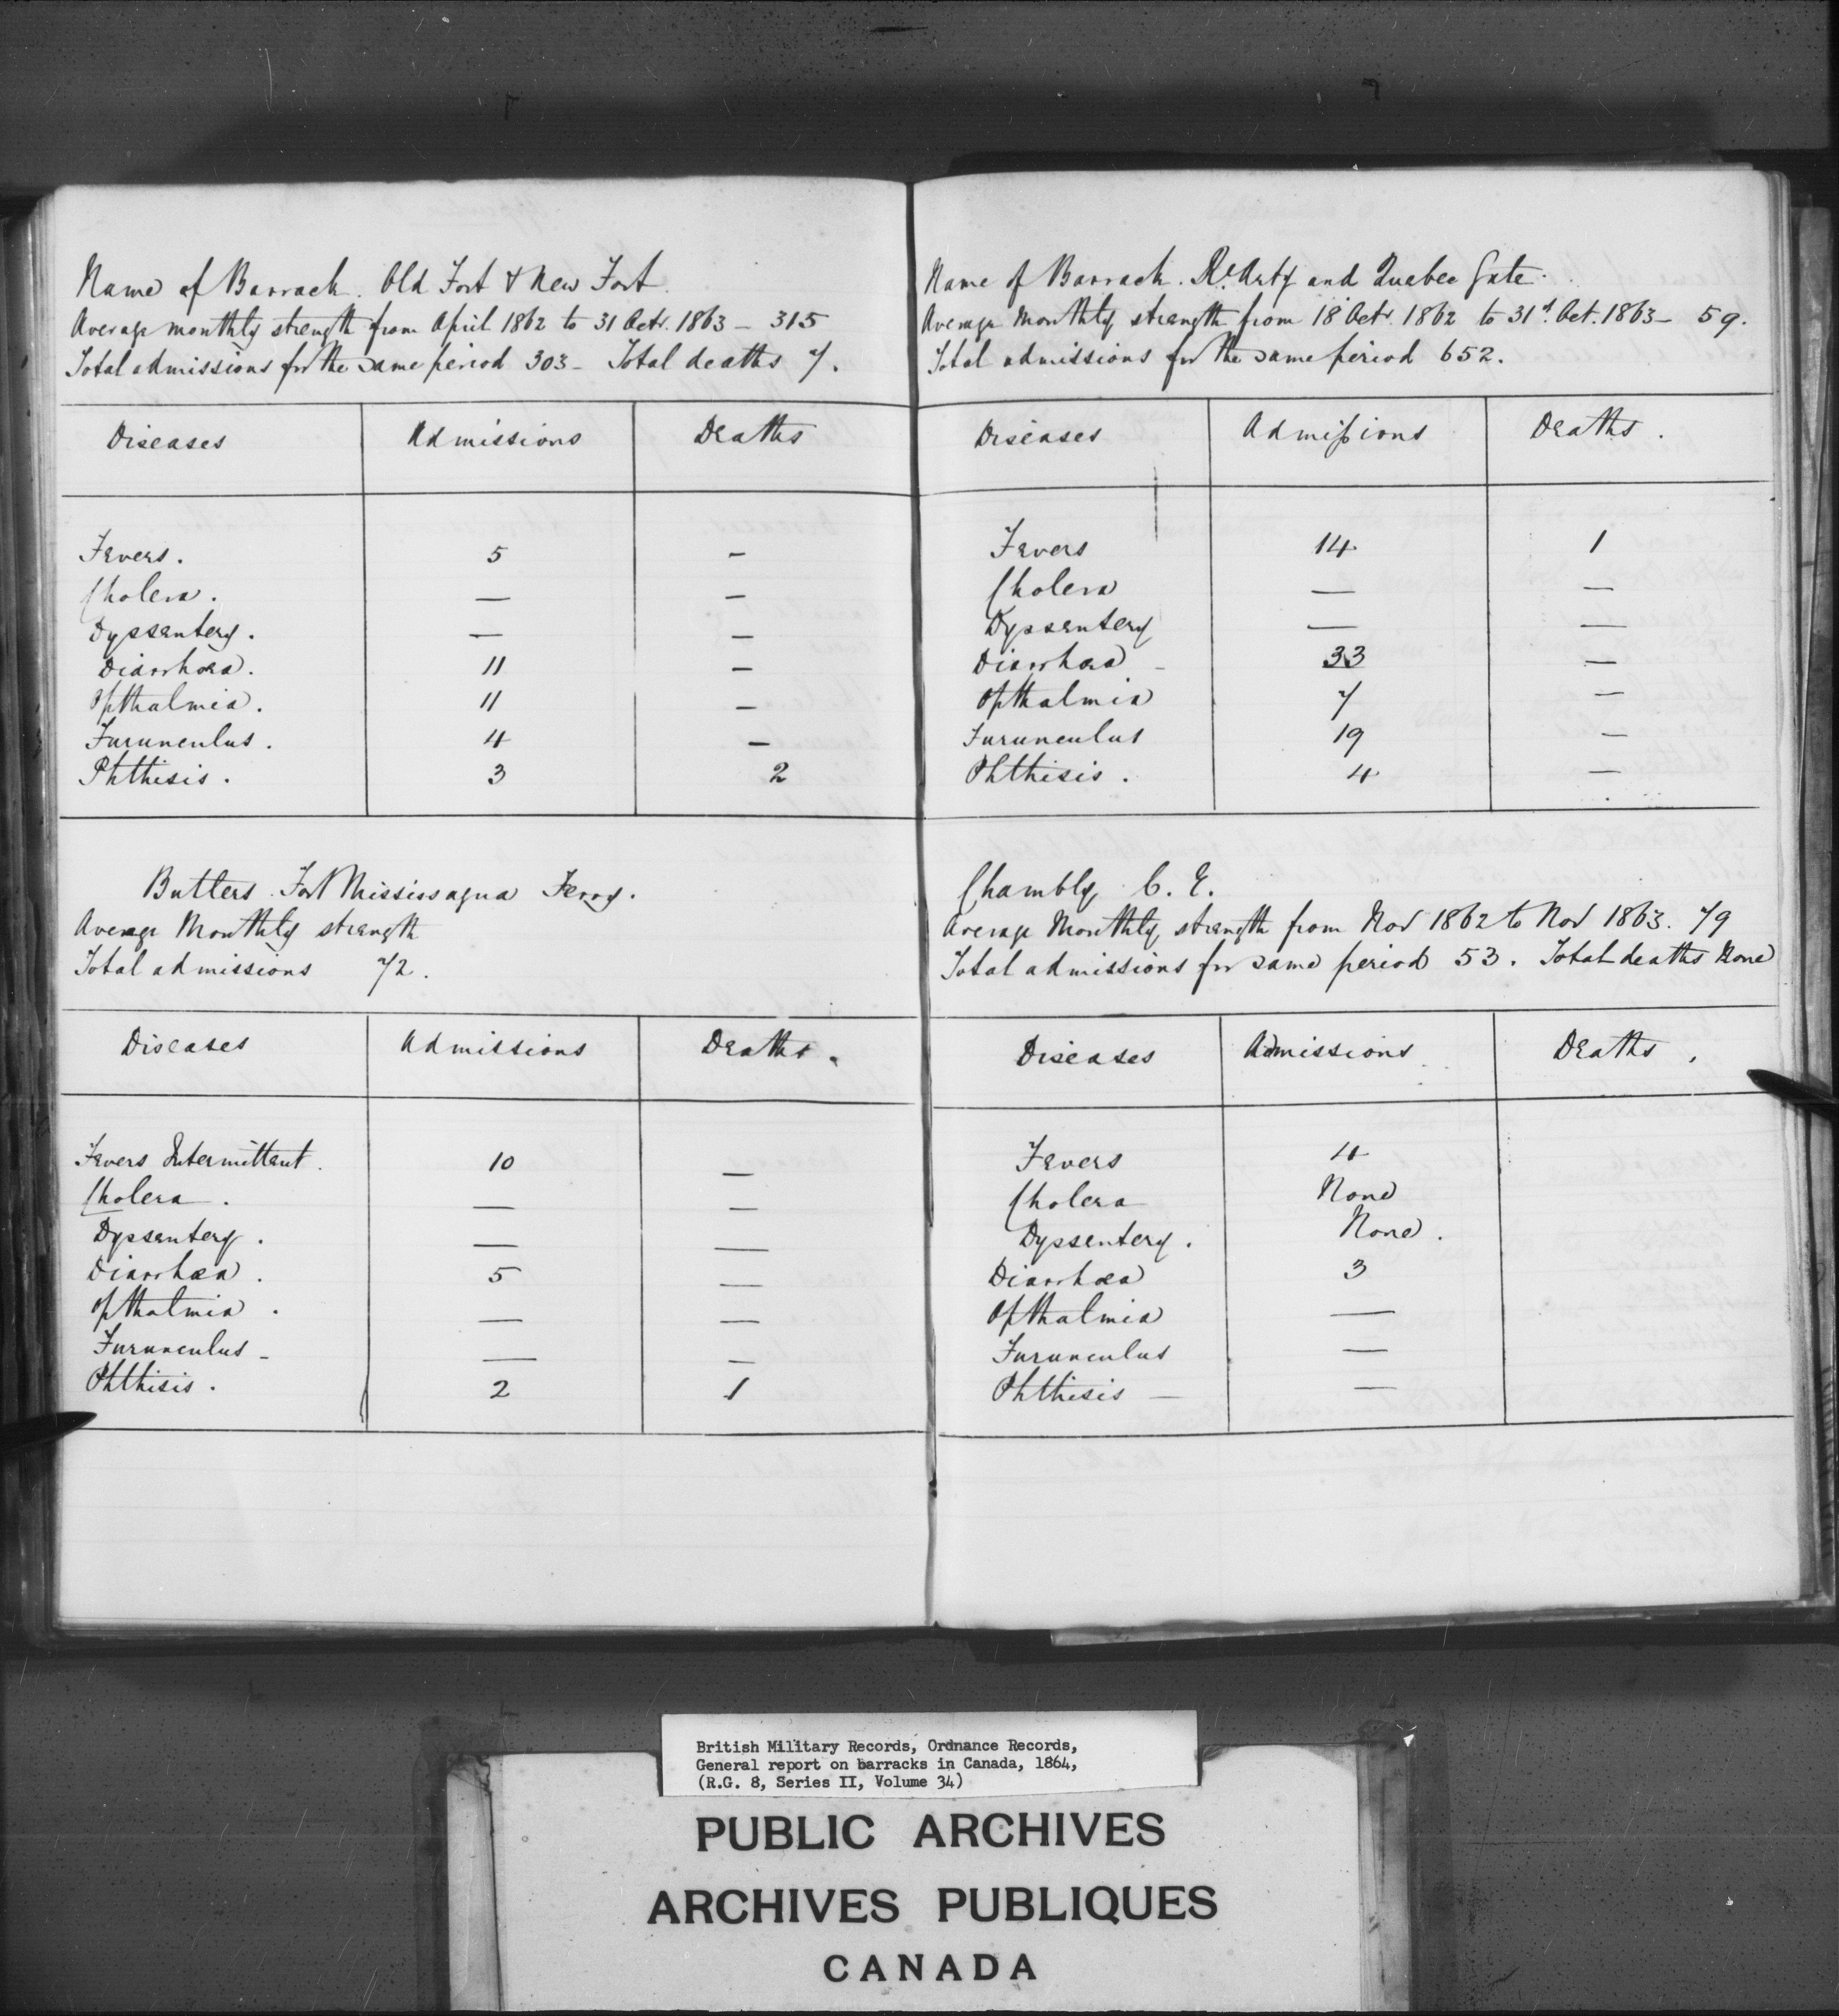 Name of Barrack. Old Fort & New Fort.
Average monthly strength from April 1862 to 31 Octr. 1863 – 315
Total admissions for the same period 303 – Total deaths 7.
Diseases Admissions Deaths
Fevers. 5 –
Cholera. — –
Dyssentery. — —
Diarrhœa. 11 –
Opthalmia. 11 –
Furunculus. 4 –
Phthisis. 3 2
Butlers Fort Mississagua Ferry.
Average Monthly strength
Total admissions 72.
Diseases Admissions Deaths.
Fevers Intermittent. 10 —
Cholera. — —
Dyssentery. — —
Diarrhœa. 5 —
Opthalmia. — —
Furunculus – — —
Phthisis. 2 1
Name of Barrack. Rl. Arty and Quebec Gate.
Average Monthly strength from 18 Octr. 1862 to 31st. Oct. 1863 – 59.
Total admissions for the same period 652.
Diseases Admissions Deaths.
Fevers 14 1
Cholera — —
Dyssentery — —
Diarrhœa – 33 —
Opthalmia 7 —
Furunculus 19 —
Phthisis. 4 —
Chambly C. E.
Average Monthly strength from Nov 1862 to Nov 1863. 79
Total admissions for same period 53. Total deaths None
Diseases Admissions Deaths.
Fevers 4
Cholera None
Dyssentery. None.
Diarrhœa 3
Opthalmia —
Furunculus —
Phthisis — —
British Military Records, Ordnance Records,
General report on barracks in Canada, 1864,
(R.G. 8, Series II, Volume 34)
PUBLIC ARCHIVES
ARCHIVES PUBLIQUES
CANADA